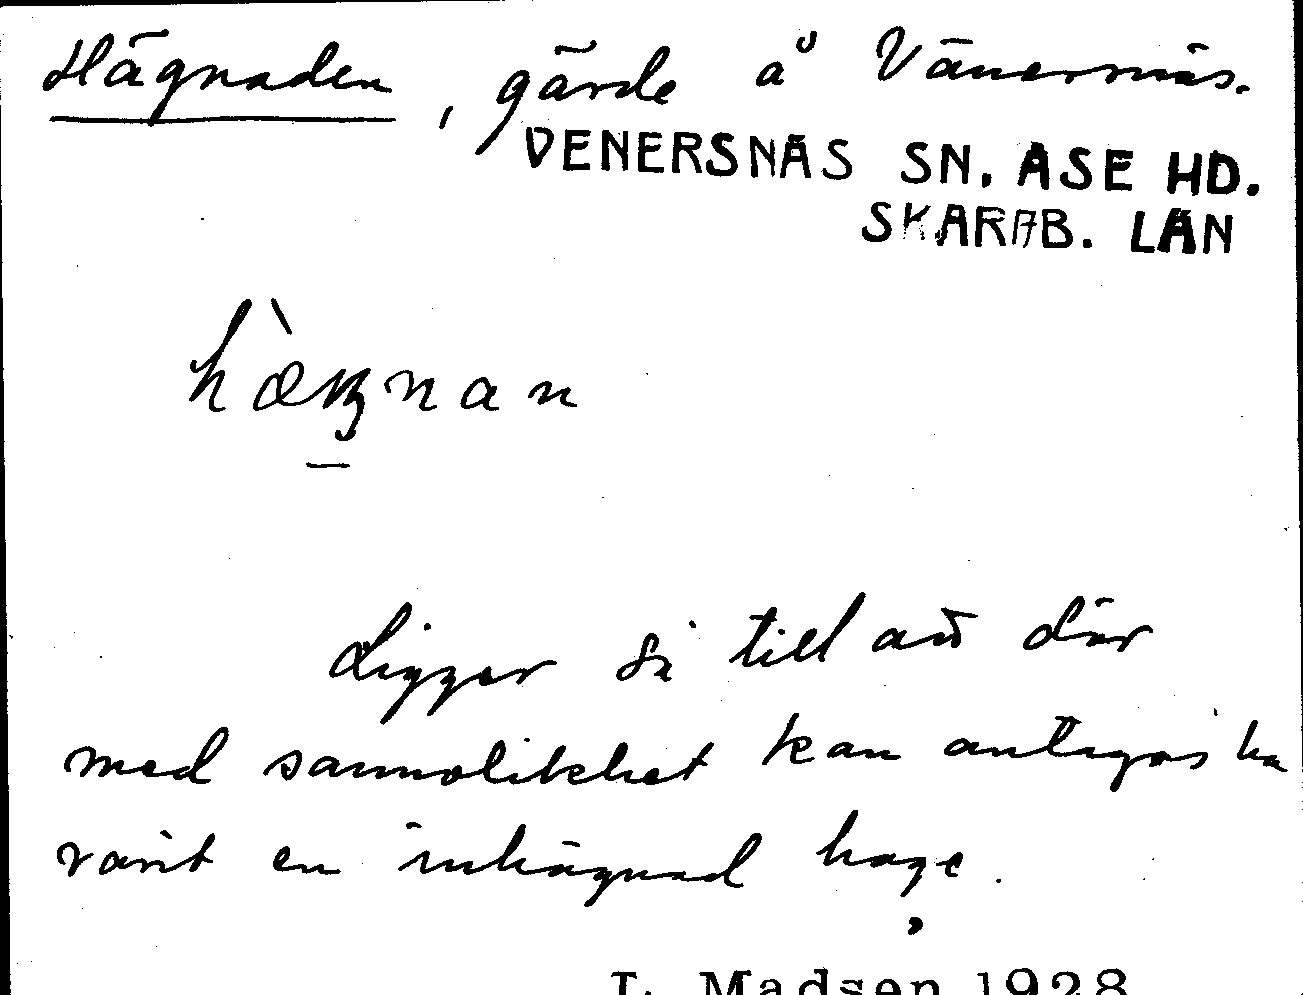 Hägnaden, gärde å Vänernäs.
VENERSNÄS SN. ÅSE HD.
SKARAB. LÄN
hæŋnan
Ligger så till att där
med sannolikhet kan antagas ha
varit en inhägnad hage.
Madsen 1928